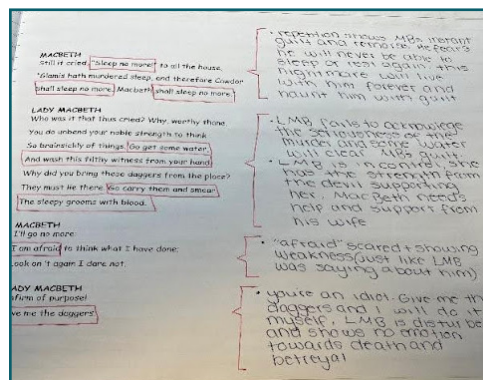 MACBETH
Still it cried, "Sleep no more" to all the house.
"Glamis hath murdered sleep, and therefore Cawdor
shall sleep no more. Macbeth shall sleep no more."
LADY MACBETH
Who was it that thus cried? Why, worthy thane,
You do unbend your noble strength to think
So brainsickly of things. Go get some water,
And wash this filthy witness from your hand.
Why did you bring these daggers from the place?
They must lie there. Go carry them and smear
The sleepy grooms with blood.
MACBETH
I'll go no more.
I am afraid to think what I have done;
Look on 't again I dare not.
ADY MACBETH
firm of purpose!
ve me the daggers
• repetition shows MBs instant
guilt and remorse. He fears
he will never be able to
sleep or rest again. this
nightmare will live
with him forever and
haunt him with guilt
• LMB fails to acknowledge
the seriousness of the
murder and some water
will clear MBs guilt
• LMB is in control, she
has the strength from
the devil supporting
her. MacBeth needs
help and support from
his wife
• "afraid" scared + showing
weakness (just like LMB
was saying about him)
• you're an idiot. Give me th
daggers and I will do it
myself. LMB is disturbe
and shows no emotion
towards death and
betreyal